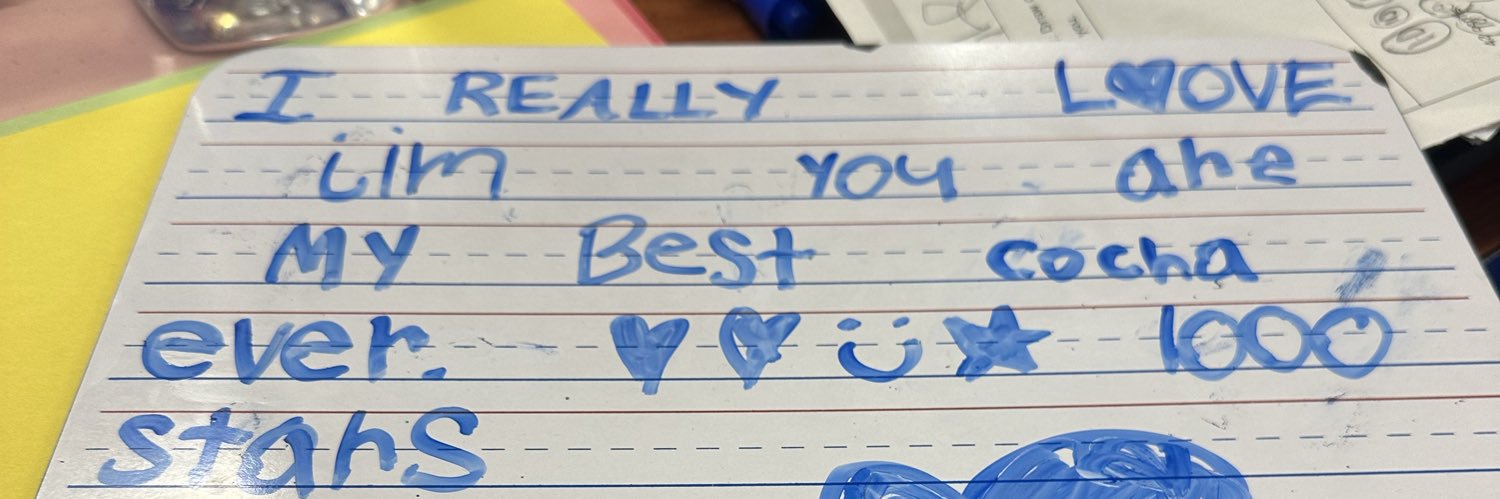 I REALLY L♥OVE
iim you are
My Best cocha
ever. ♥ ♥ ☺ ★ 1000
stars